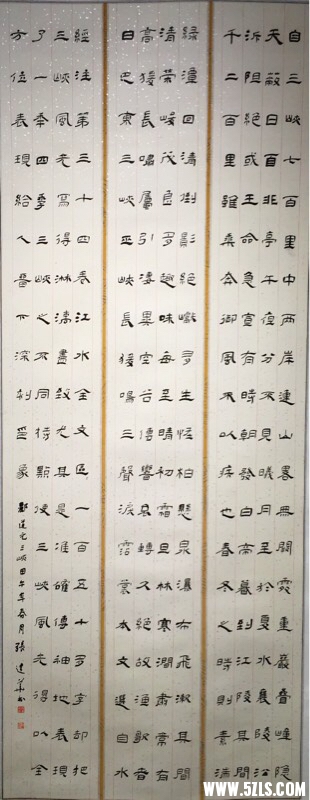 自三峽七百里中兩岸連山畧無闕處重巖疊嶂隱
天蔽日自非亭午夜分不見曦月至於夏水襄陵沿
泝阻絕或王命急宣有時朝發白帝暮到江陵其間
千二百里雖乘奔御風不以疾也春冬之時則素湍
綠潭回清倒影絕巘多生怪柏懸泉瀑布飛漱其間
清榮峻茂良多趣味每至晴初霜旦林寒澗肅常有
高猿長嘯屬引淒異空谷傳響哀轉久絕故漁歌者
曰巴東三峽巫峽長猿鳴三聲淚霑裳本文選自水
經注第三十四卷江水全文區一百五十多字却把
三峽風光寫得淋漓盡致尤其是准確傳神地表現
了一年四季三峽之不同特點使三峽風光得以全
方位表現給人留下深刻印象
酈道元三峽甲午年春月張建華書
WWW.5ZLS.COM